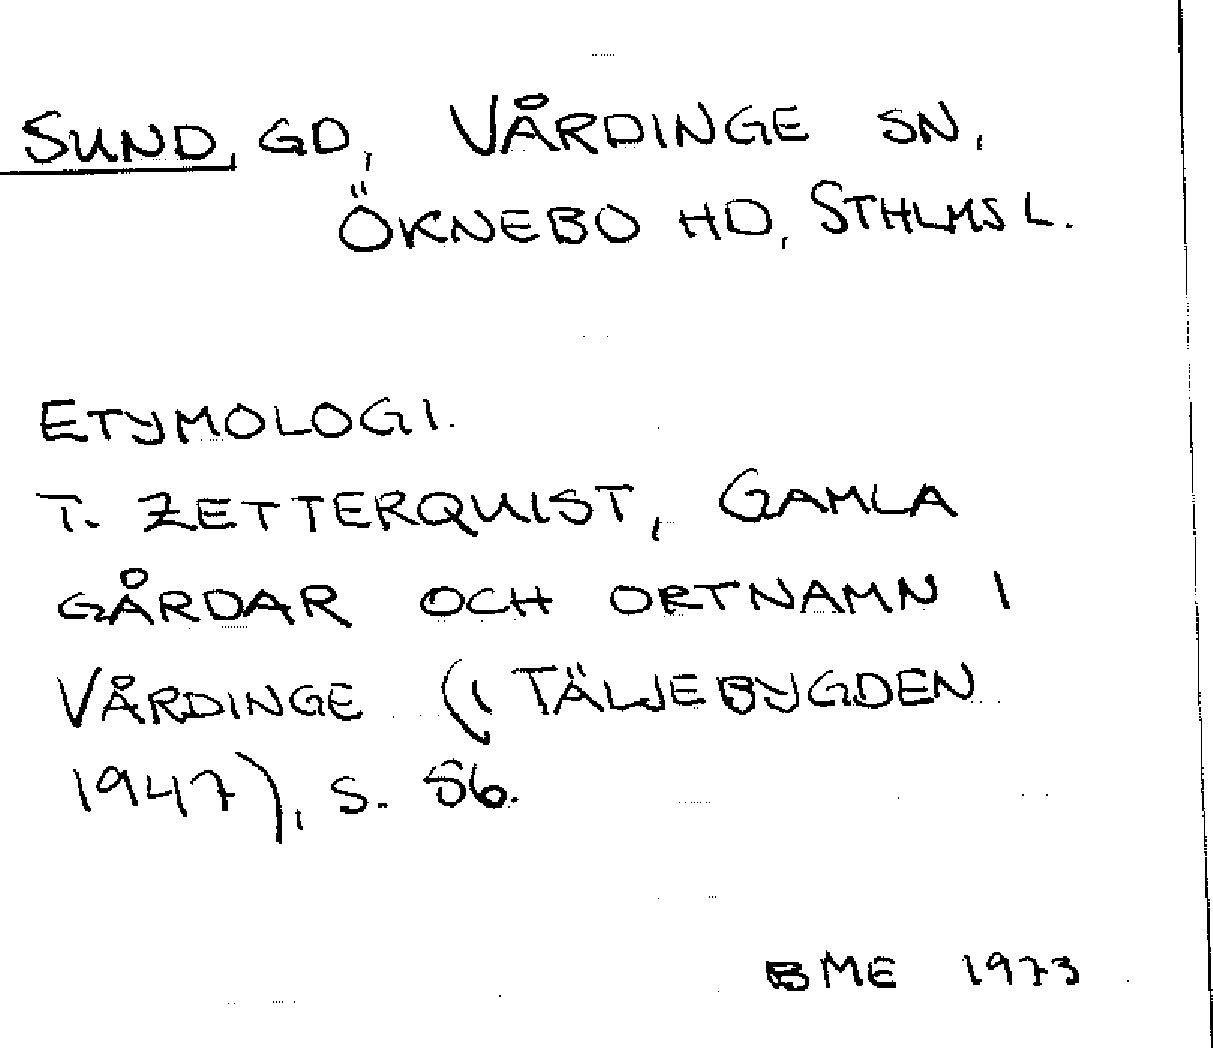 SUND, GD, VÅRDINGE SN,
ÖKNEBO HD, STHLMS L.
ETYMOLOGI.
T. ZETTERQUIST, GAMLA
GÅRDAR OCH ORTNAMN I
VÅRDINGE (I TÄLJEBYGDEN
1947), S. 56.
BME 1973